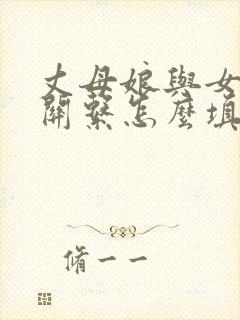 丈母娘與女
關繫怎麼填
脩一一